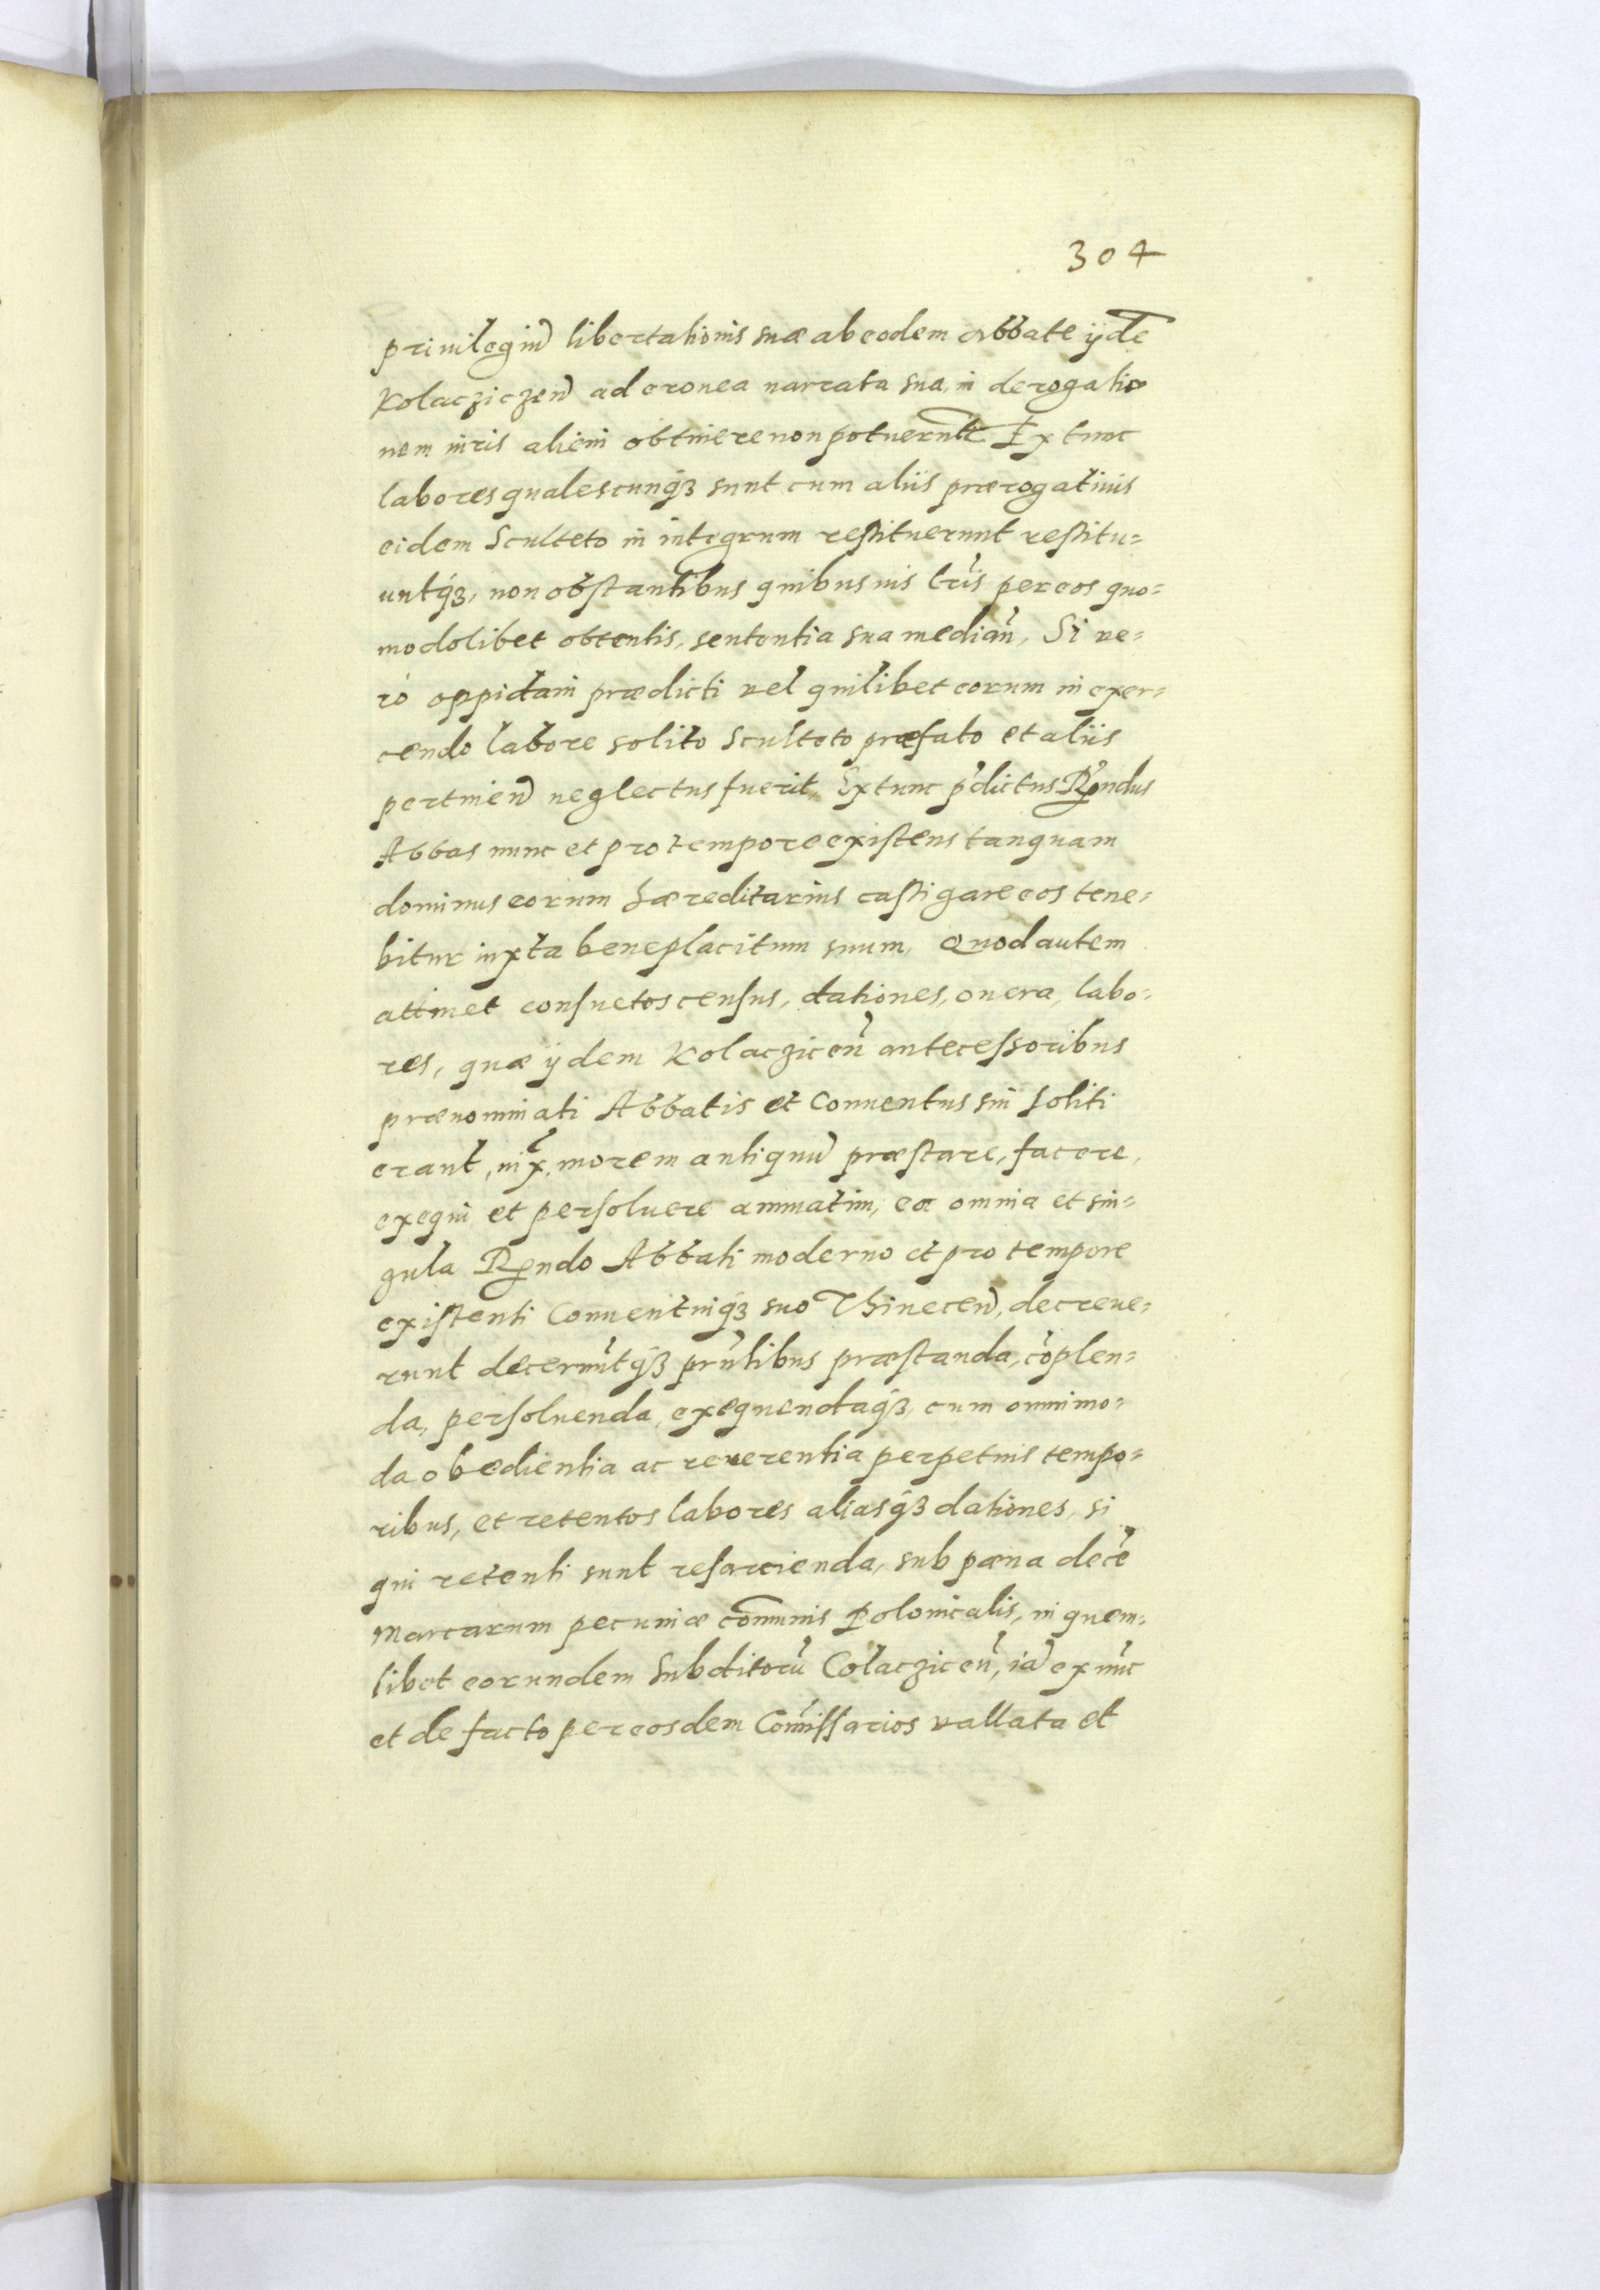 304
priuilegiu͂ libertationis suæ ab eodem Abbate ijde͂
Kolacziczen͂ ad eronea narrata sua, in derogatio
nem iuris alieni obtinere non potuerunt. Extunc
labores qualescunqꝫ sunt cum aliis prærogatiuis
eidem Sculteto in integrum restituerunt restitu=
untqꝫ, non obstantibus quibusuis lr̃is per eos quo=
modolibet obtentis, sententia sua median͂, Si ve=
rò oppidani prædicti vel quilibet eorum in exer=
cendo labore solito Sculteto præfato et aliis
pertinen͂ neglectus fuerit, Extunc p͂dictus Rn͂dus
Abbas nunc et pro tempore existens tanquam
dominus eorum hæreditarius castigare eos tene=
bitur iuxta beneplacitum suum, Quod autem
attinet consuetos census, dationes, onera, labo=
res, quæ ijdem Kolacziceñ antecessoribus
prænominati Abbatis et Conuentus sui soliti
erant, iux͂ morem antiquu͂ præstare, facere,
exequi et persoluere annuatim, ea omnia et sin=
gula Rn͂do Abbati moderno et pro tempore
existenti Conuentuiqꝫ suo Thinecen͂, decreue=
runt decernu͂tqꝫ prn͂tibus præstanda, co͂plen=
da, persoluenda, exequendaqꝫ, cum omnimo=
da obedientia ac reuerentia perpetuis tempo=
ribus, et retentos labores aliasqꝫ dationes, si
qui retenti sunt resarcienda, sub pæna dece͂
Marcarum pecuniæ com͂unis Polonicalis, in quem=
libet eorundem Subditoru͂ Colacziceñ, ia͂ ex nu͂c
et de facto per eosdem Com͂issarios vallata et